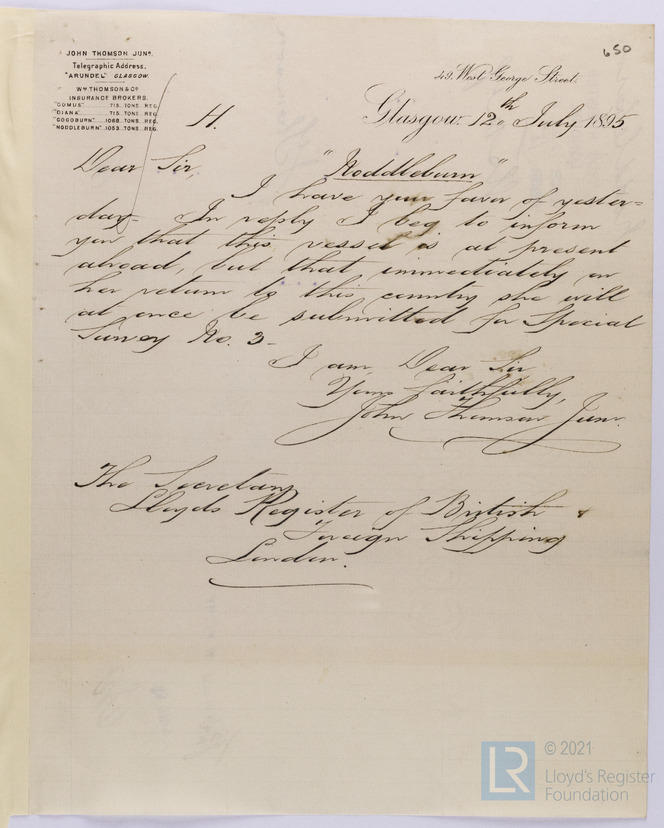 650
JOHN THOMSON JUNR.
Telegraphic Address.
"ARUNDEL" GLASGOW.
WM THOMSON & CO
INSURANCE BROKERS.
"COMUS" 715 TONS REG.
"DIANA" 715 TONS REG.
"GOGOBURN" 1068 TONS REG.
"NODDLEBURN" 1053 TONS REG.
49, West George Street.
H.
Glasgow. 12th July 1895
Dear Sir,
"Noddleburn"
I have your favor of yester=
day. In reply I beg to inform
you that this vessel is at present
abroad, but that immediately on
her return to this country she will
at once be submitted for Special
Survey No. 3-
I am, Dear Sir
Yours faithfully,
John Thomson Junr.
The Secretary
Lloyds Register of British &
Foreign Shipping
London.
LR
© 2021
Lloyd's Register
Foundation